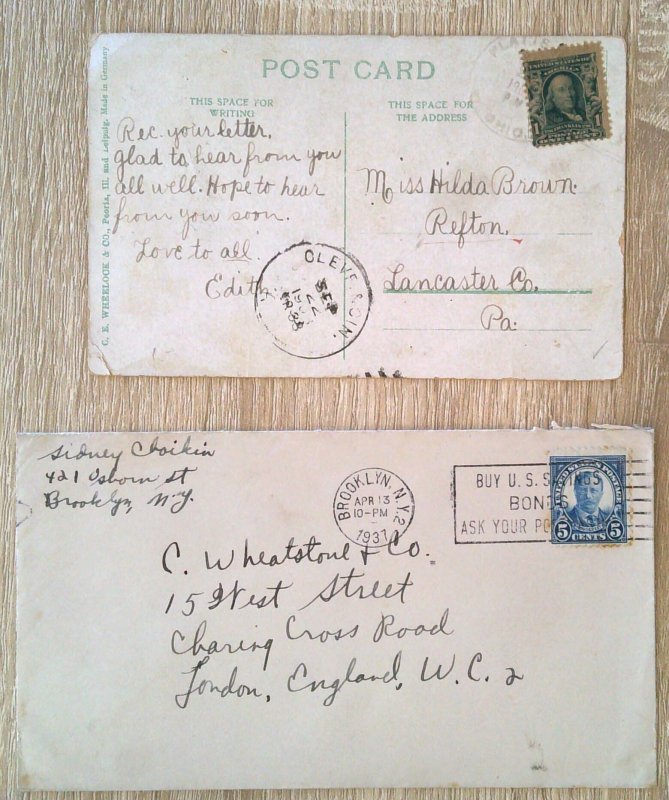 POST CARD
C. E. WHEELOCK & CO., Peoria, Ill. and Leipzig. Made in Germany
THIS SPACE FOR
WRITING
THIS SPACE FOR
THE ADDRESS
Rec. your letter,
glad to hear from you
all well. Hope to hear
from you soon.
Love to all.
Edith
Miss Hilda Brown.
Refton,
Lancaster Co.
Pa.
OHIO
UNITED STATES OF
AMERICA
1
1
CLEVE
CIN.
SEP
22
Sidney Choikin
421 Osborn st
Brooklyn, N.Y.
BROOKLYN, N.Y. 2
APR 13
10-PM
1937
BUY U.S. S INGS
BONDS
ASK YOUR PO
UNITED STATES POSTAGE
5 CENTS 5
C. Wheatstone & Co.
15 West Street
Charing Cross Road
London, England, W.C. 2